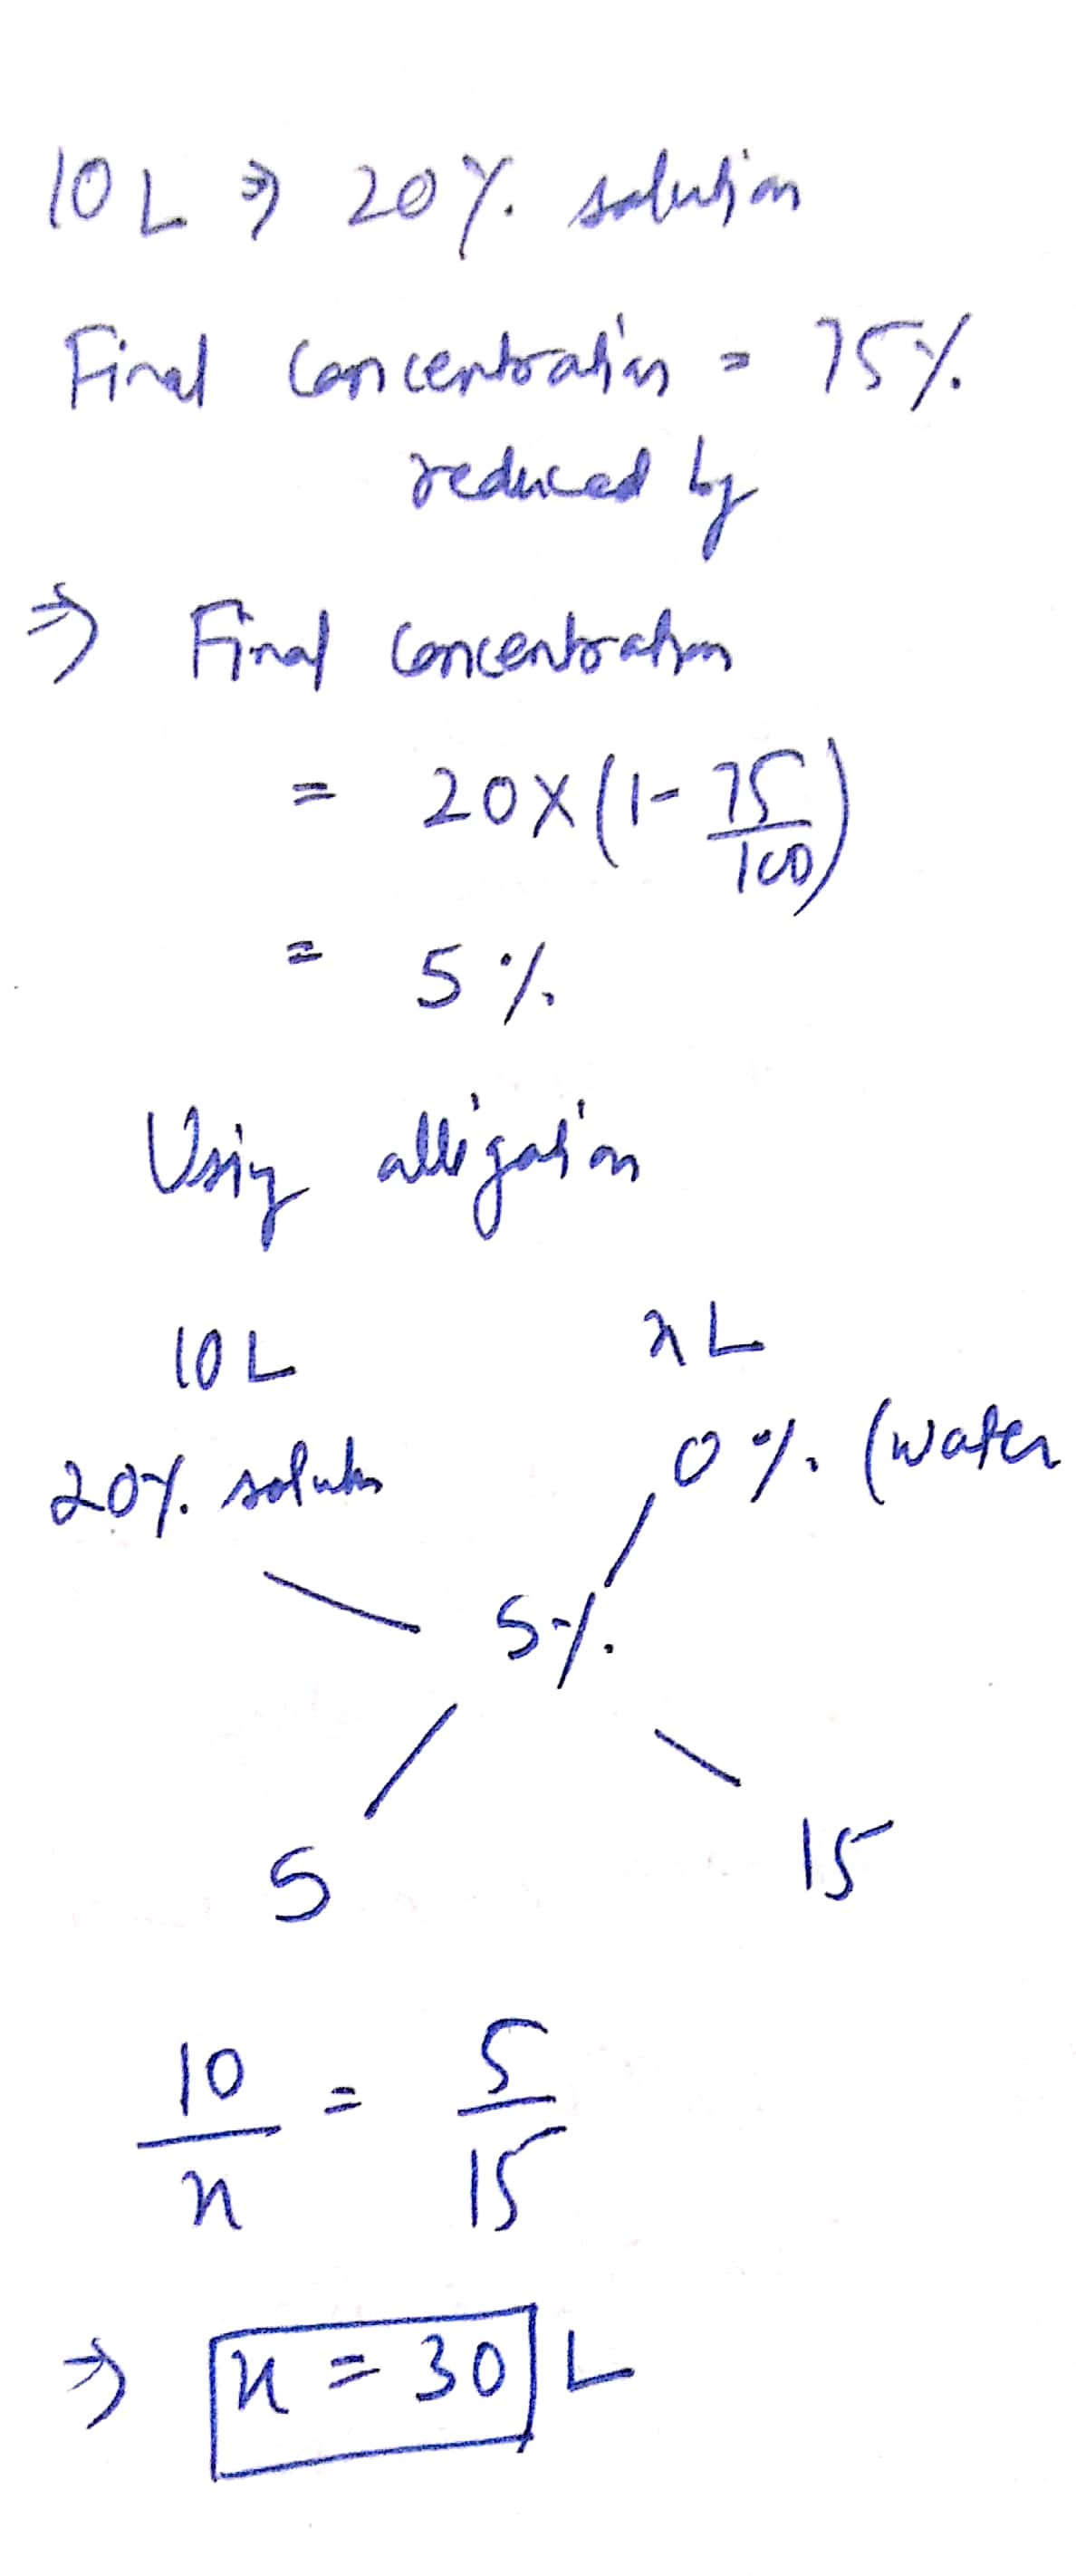 10 L ⇒ 20% solution
Final concentration = 75%
reduced by
⇒ Final concentration
= 20 x (1 - 75/100)
= 5%
Using alligation
10 L x L
20% solution 0% (water
5%
5 15
10/x = 5/15
⇒ x = 30 L